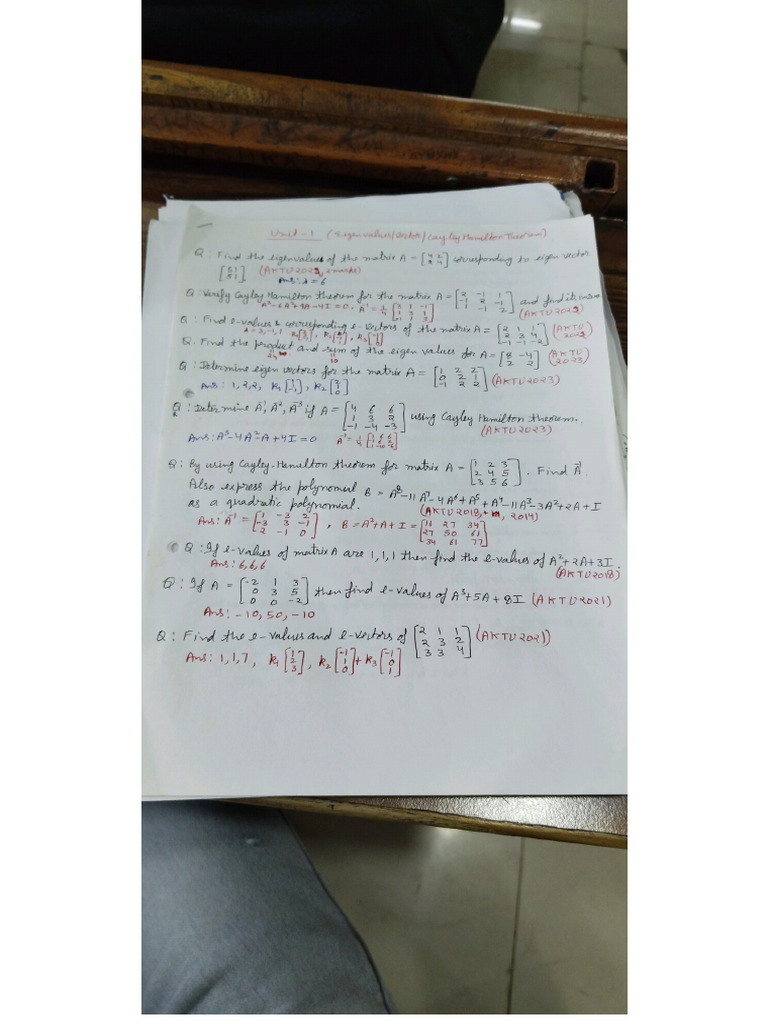 Unit-1 (Eigen values/vector/Cayley Hamilton Theorem)
Q: Find the eigenvalues of the matrix A = [4 2; 2 4] corresponding to eigen vector
[51; 51] (AKTU 2022, 2 marks)
Ans: λ = 6
Q: Verify Cayley Hamilton theorem for the matrix A = [2 -1 1; -1 2 -1; 1 -1 2] and find its
A³-6A²+9A-4I=0, A⁻¹ = 1/4 [3 1 -1; 1 3 1; -1 1 3] (AKTU 2022)
Q: Find e-values & corresponding e-vectors of the matrix A = [2 1 1; 2 3 4; -1 -1 -2] (AKTU 2022)
λ = 3,-1,1
Q. Find the product and sum of the eigen values for A = [8 -4; 2 2] (AKTU 2023)
24 10
Q: Determine eigen vectors for the matrix A = [1 2 2; 0 2 1; -1 2 2] (AKTU 2023)
Ans: 1,2,2, k₁ [1; 1; -1], k₂ [2; 1; 0]
Q: Determine A⁻¹, A⁻², A⁻³ if A = [4 6 6; 1 3 2; -1 -4 -3] using Cayley Hamilton theorem.
(AKTU 2023)
Ans: A³-4A²-A+4I=0 A⁻¹ = 1/4
Q: By using Cayley-Hamilton theorem for matrix A = [1 2 3; 2 4 5; 3 5 6]. Find A⁻¹.
Also express the polynomial B = A⁸-11A⁷-4A⁶+A⁵+A⁴-11A³-3A²+2A+I
as a quadratic polynomial. (AKTU 2018, 2014)
Ans: A⁻¹ = [1 -3 2; -3 3 -1; 2 -1 0], B = A²+A+I = [16 27 34; 27 50 61; 34 61 77]
Q: If e-values of matrix A are 1,1,1 then find the e-values of A²+2A+3I.
Ans: 6,6,6 (AKTU 2018)
Q: If A = [-2 1 3; 0 3 5; 0 0 -2] then find e-values of A³+5A+8I (AKTU 2021)
Ans: -10, 50, -10
Q: Find the e-values and e-vectors of [2 1 1; 2 3 2; 3 3 4] (AKTU 2021)
Ans: 1,1,7, k₁ [1; 2; 3], k₂ [-1; 1; 0] + k₃ [-1; 0; 1]